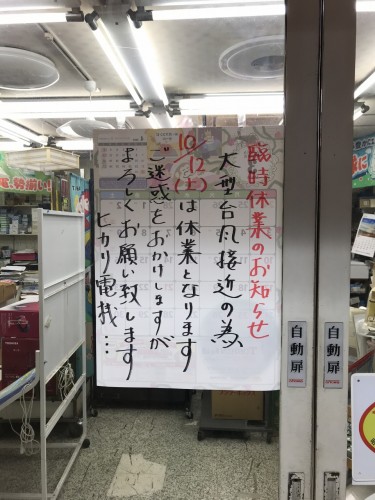 臨時休業のお知らせ
大型台風接近の為
10/12(土)は休業となります
ご迷惑をおかけしますが
よろしくお願い致します
ヒカリ電機…
自動扉
自動扉
勢揃い!